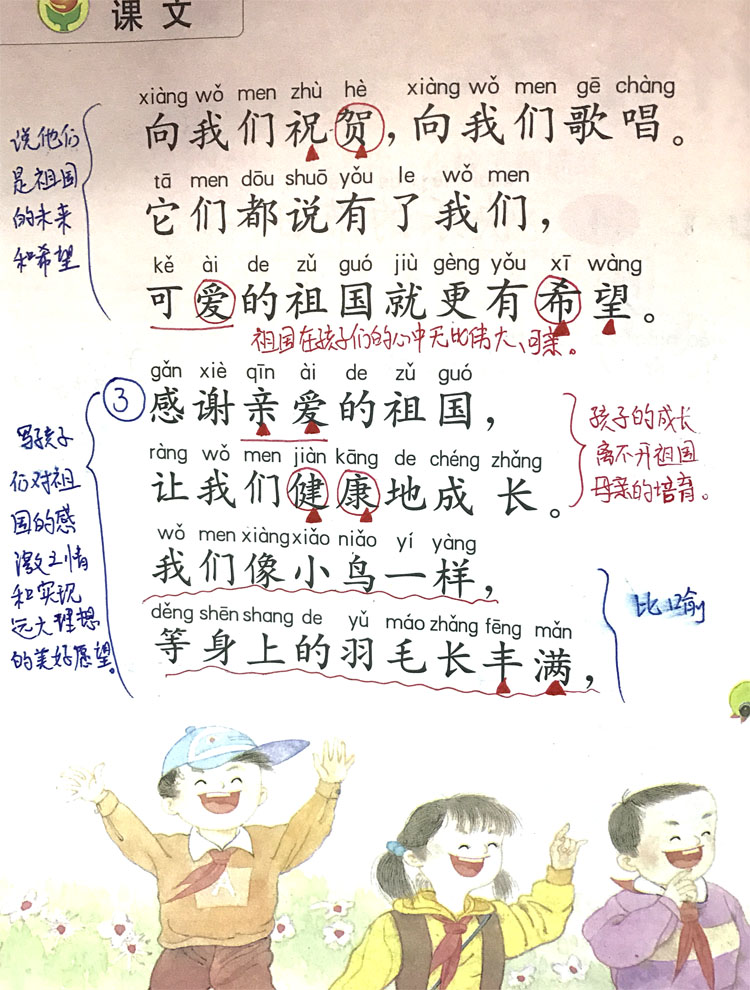 课文
xiàng wǒ men zhù hè xiàng wǒ men gē chàng
向我们祝贺，向我们歌唱。
tā men dōu shuō yǒu le wǒ men
它们都说有了我们，
kě ài de zǔ guó jiù gèng yǒu xī wàng
可爱的祖国就更有希望。
说他们
是祖国
的未来
和希望
祖国在孩子们的心中无比伟大、可亲。
gǎn xiè qīn ài de zǔ guó
③感谢亲爱的祖国，
ràng wǒ men jiàn kāng de chéng zhǎng
让我们健康地成长。
孩子的成长
离不开祖国
母亲的培育。
wǒ men xiàng xiǎo niǎo yí yàng
我们像小鸟一样，
děng shēn shang de yǔ máo zhǎng fēng mǎn
等身上的羽毛长丰满，
写孩子
们对祖
国的感
激之情
和实现
远大理想
的美好愿望。
比喻